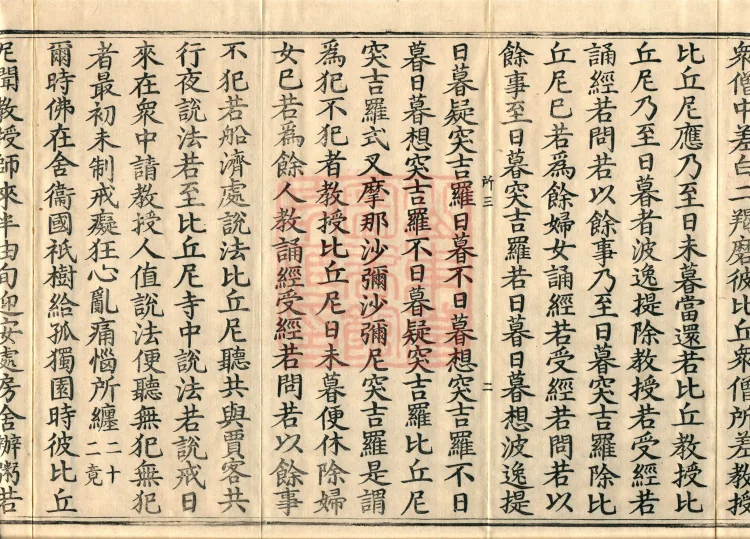 衆僧中差白二羯磨彼比丘衆僧所差教授
比丘尼應乃至日未暮當還若比丘教授比
丘尼乃至日暮者波逸提除教授若受經若
誦經若問若以餘事乃至日暮突吉羅除比
丘尼巳若爲餘婦女誦經若受經若問若以
餘事至日暮突吉羅若日暮日暮想波逸提
所三 二
日暮疑突吉羅日暮不日暮想突吉羅不日
暮日暮想突吉羅不日暮疑突吉羅比丘尼
突吉羅式叉摩那沙彌沙彌尼突吉羅是謂
爲犯不犯者教授比丘尼日未暮便休除婦
女巳若為餘人教誦經受經若問若以餘事
不犯若船濟處說法比丘尼聽共與賈客共
行夜說法若至比丘尼寺中說法若說戒日
來在衆中請教授人值說法便聽無犯無犯
者最初未制戒癡狂心亂痛惱所纏二十二竟
爾時佛在舍衞國祇樹給孤獨園時彼比丘
尼聞教授師來半由旬迎安處房舍辦粥若